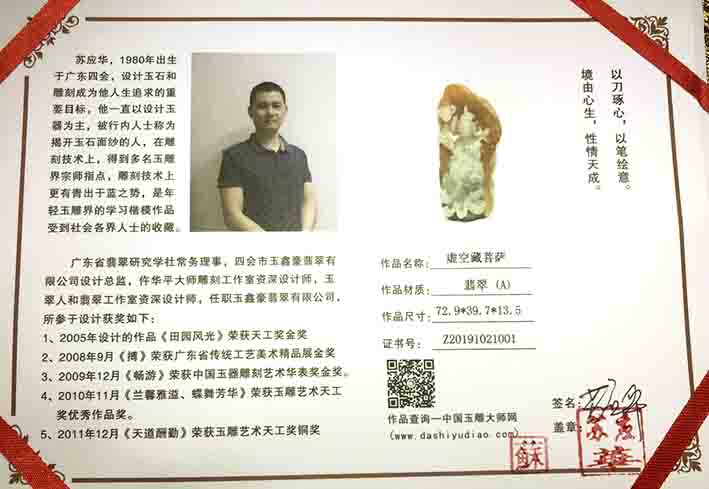 苏应华，1980年出生
于广东四会，设计玉石和
雕刻成为他人生追求的重
要目标，他一直以设计玉
器为主，被行内人士称为
揭开玉石面纱的人，在雕
刻技术上，得到多名玉雕
界宗师指点，雕刻技术上
更有青出于蓝之势，是年
轻玉雕界的学习楷模作品
受到社会各界人士的收藏。
广东省翡翠研究学社常务理事，四会市玉鑫豪翡翠有
限公司设计总监，仵华平大师雕刻工作室资深设计师，玉
翠人和翡翠工作室资深设计师，任职玉鑫豪翡翠有限公司，
所参于设计获奖如下：
1、2005年设计的作品《田园风光》荣获天工奖金奖
2、2008年9月《搏》荣获广东省传统工艺美术精品展金奖
3、2009年12月《畅游》荣获中国玉器雕刻艺术华表奖金奖。
4、2010年11月《兰馨雅溢、蝶舞芳华》荣获玉雕艺术天工
奖优秀作品奖。
5、2011年12月《天道酬勤》荣获玉雕艺术天工奖铜奖
以刀琢心，以笔绘意。
境由心生，性情天成。
作品名称：虚空藏菩萨
作品材质：翡翠（A）
作品尺寸：72.9*39.7*13.5
证书号：Z20191021001
作品查询一中国玉雕大师网
(www.dashiyudiao.com)
签名：
盖章：